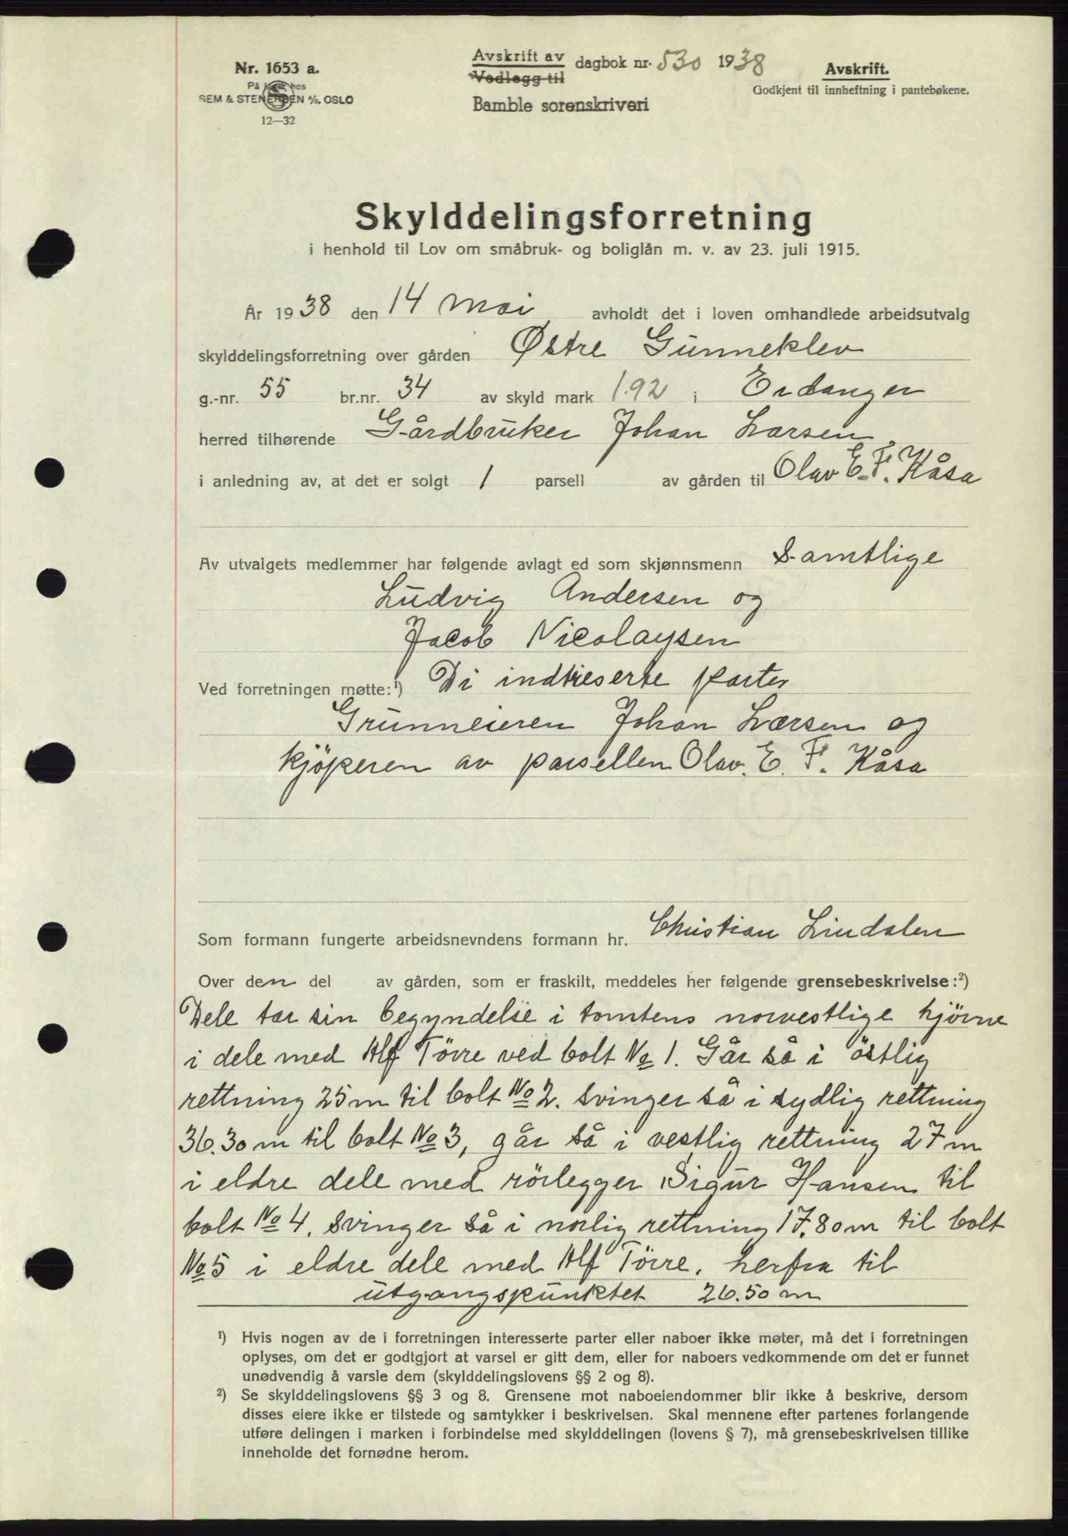 Nr. 1653 a.
På lager hos
SEM & STENERSEN A/S, OSLO
12—32
Avskrift av
Vedlegg til
dagbok nr. 530 1938
Bamble sorenskriveri
Avskrift.
Godkjent til innheftning i pantebøkene.
Skylddelingsforretning
i henhold til Lov om småbruk- og boliglån m. v. av 23. juli 1915.
År 1938 den 14 mai avholdt det i loven omhandlede arbeidsutvalg
skylddelingsforretning over gården Østre Gunneklev
g.-nr. 55 br.nr. 34 av skyld mark 1.92 i Eidanger
herred tilhørende Gårdbruker Johan Larsen
i anledning av, at det er solgt 1 parsell av gården til Olav E. F. Kåsa
Av utvalgets medlemmer har følgende avlagt ed som skjønnsmenn Samtlige
Ludvig Andersen og
Jacob Nicolaysen
Ved forretningen møtte:¹) Di indtreserte parter
Grunneieren Johan Larsen og
kjöperen av parsellen Olav. E. F. Kåsa
Som formann fungerte arbeidsnevndens formann hr. Christian Lindalen
Over den del av gården, som er fraskilt, meddeles her følgende grensebeskrivelse:²)
Dele tar sin begyndelse i tomtens norvestlige hjørne
i dele med Alf Törre ved bolt No 1. Går så i östlig
rettning 25 m til bolt No 2. svinger så i sydlig rettning
36.30 m til bolt No 3, går så i vestlig rettning 27 m
i eldre dele med rörlegger Sigur Hansen til
bolt No 4. svinger så i norlig rettning 17.80 m til bolt
No 5 i eldre dele med Alf Törre. herfra til
utgangspunktet 26.50 m
¹) Hvis nogen av de i forretningen interesserte parter eller naboer ikke møter, må det i forretningen
oplyses, om det er godtgjort at varsel er gitt dem, eller for naboers vedkommende om det er funnet
unødvendig å varsle dem (skylddelingslovens §§ 2 og 8).
²) Se skylddelingslovens §§ 3 og 8. Grensene mot naboeiendommer blir ikke å beskrive, dersom
disses eiere ikke er tilstede og samtykker i beskrivelsen. Skal mennene efter partenes forlangende
utføre delingen i marken i forbindelse med skylddelingen (lovens § 7), må grensebeskrivelsen tillike
inneholde det fornødne herom.